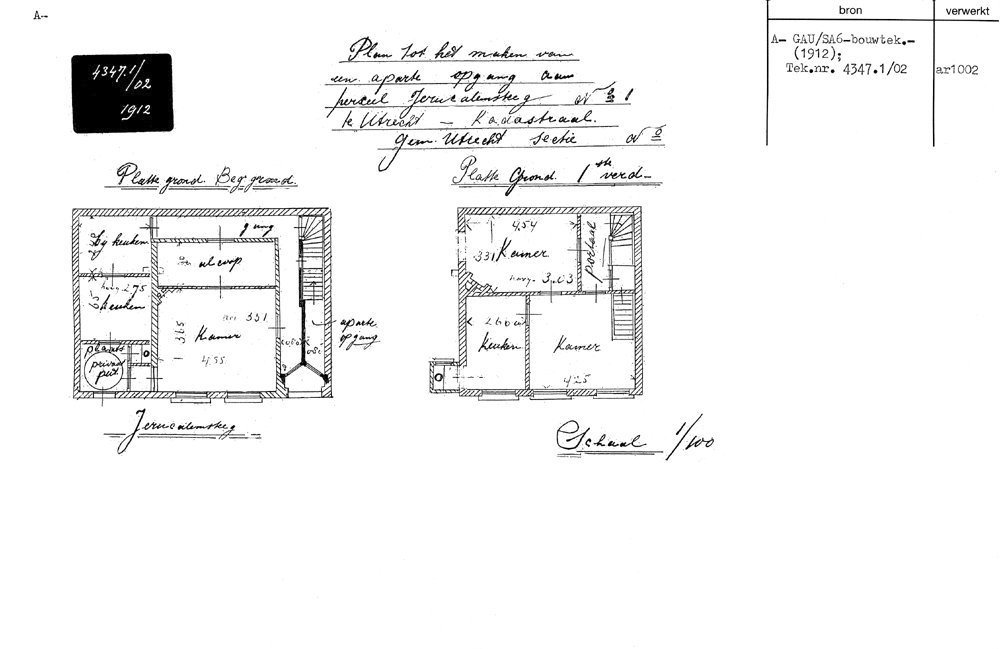 A-
bron
verwerkt
A- GAU/SA6-bouwtek.-
(1912);
Tek.nr. 4347.1/02
ar1002
4347.1/
02
1912
Plan tot het maken van
een aparte opgang aan
perceel Jeruzalemsteeg No 1
te Utrecht - Kadastraal.
Gem. Utrecht sectie No
Platte grond. Beg. grond.
Platte Grond. 1ste verd-
bij keuken
gang
alcoop
hoog 2.75
keuken
331
365
Kamer
4.55
plaats
privaat
put
aparte
opgang
4,54
331
Kamer
hoog. 3.03
portaal
260
Keuken
Kamer
425
Jeruzalemsteeg
Schaal 1/100